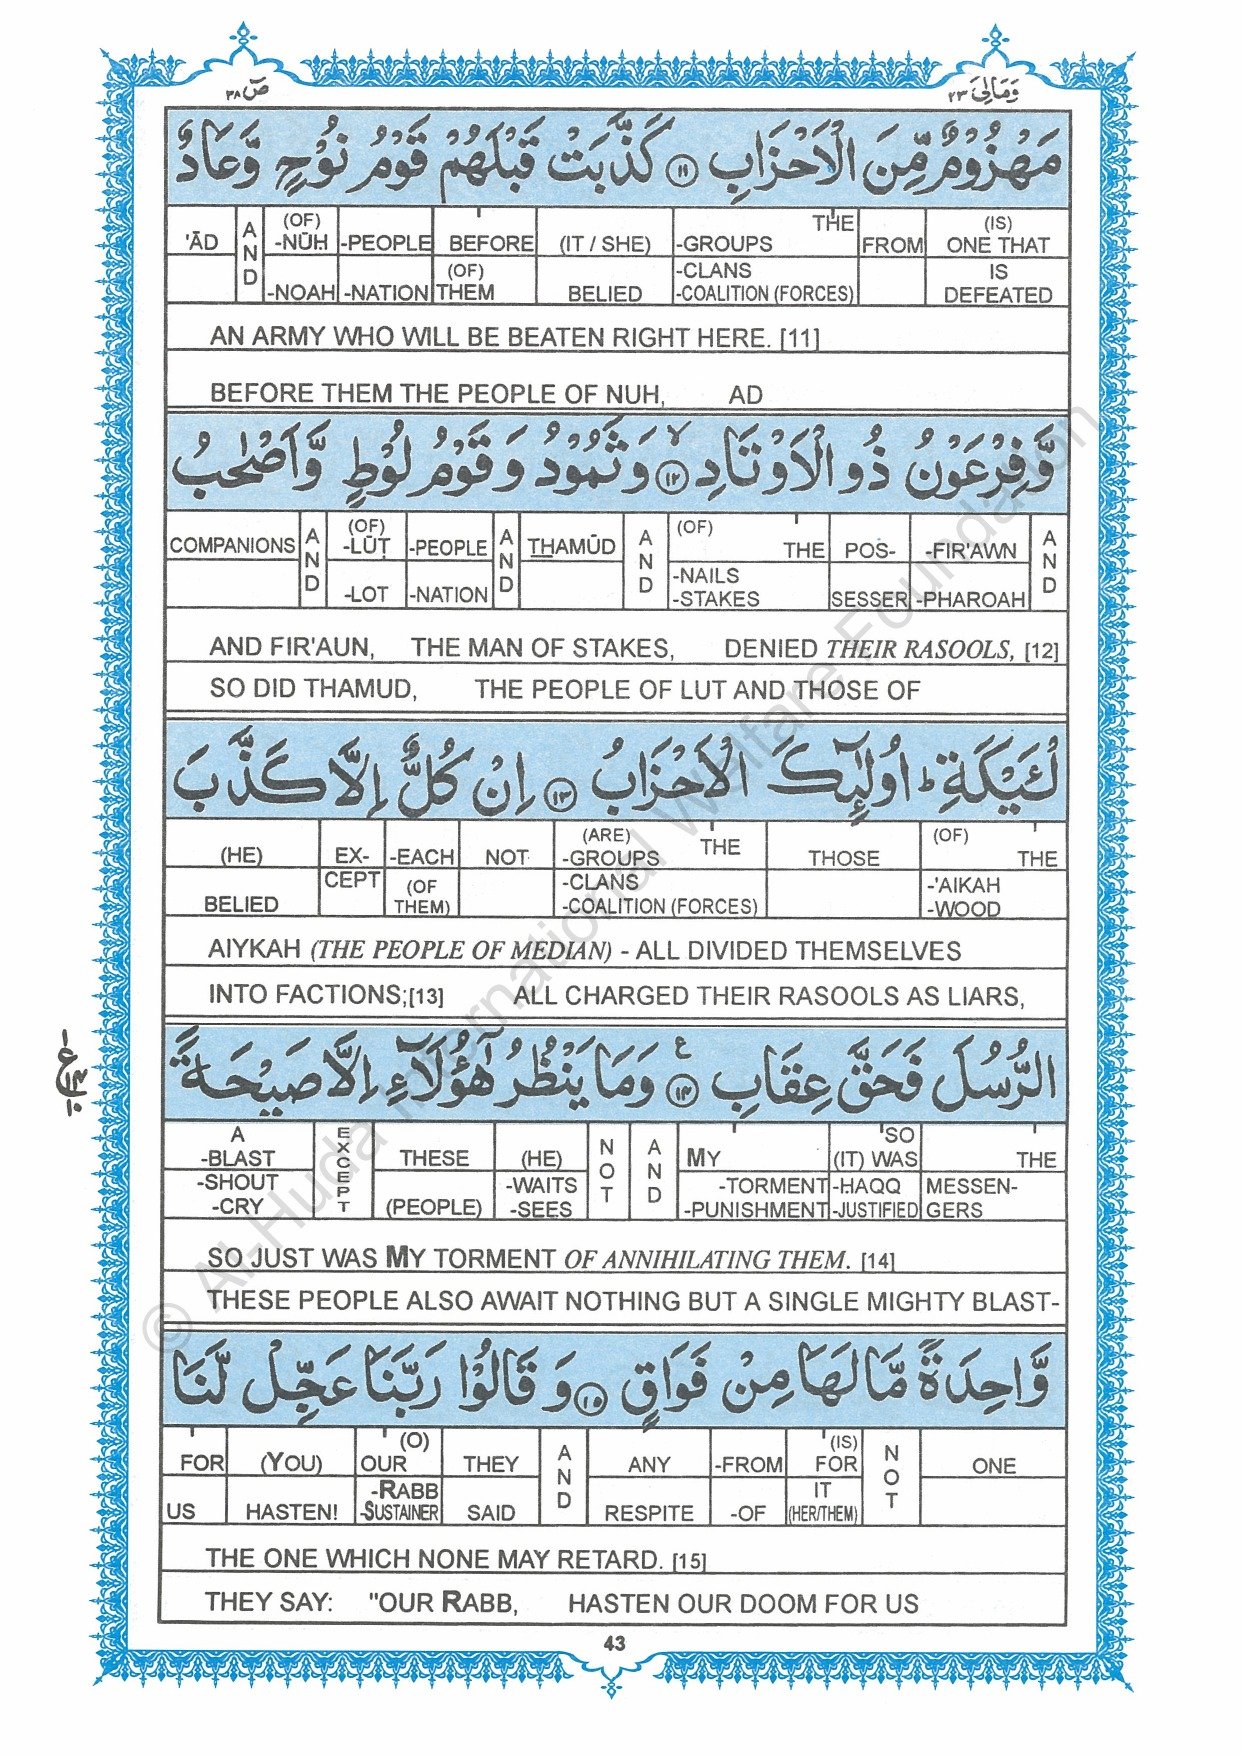 صٓ ٣٨
وَمَالِیَ ٢٣
مَهْزُوْمٌ مِّنَ الْاَحْزَابِ ۝١١ كَذَّبَتْ قَبْلَهُمْ قَوْمُ نُوْحٍ وَّعَادٌ
'ĀD AND (OF) -NŪH -PEOPLE BEFORE (IT / SHE) -GROUPS THE FROM (IS) ONE THAT
-NOAH -NATION (OF) THEM BELIED -CLANS -COALITION (FORCES) IS DEFEATED
AN ARMY WHO WILL BE BEATEN RIGHT HERE. [11]
BEFORE THEM THE PEOPLE OF NUH, AD
وَّفِرْعَوْنُ ذُو الْاَوْتَادِ ۝١٢ۙ وَثَمُوْدُ وَقَوْمُ لُوْطٍ وَّاَصْحٰبُ
COMPANIONS AND (OF) -LŪṬ -PEOPLE AND THAMŪD AND (OF) THE POS- -FIR'AWN AND
-LOT -NATION -NAILS -STAKES SESSER -PHAROAH
AND FIR'AUN, THE MAN OF STAKES, DENIED THEIR RASOOLS, [12]
SO DID THAMUD, THE PEOPLE OF LUT AND THOSE OF
لْـَٔيْكَةِ ؕ اُولٰٓئِكَ الْاَحْزَابُ ۝١٣ اِنْ كُلٌّ اِلَّا كَذَّبَ
(HE) EX- -EACH NOT (ARE) -GROUPS THE THOSE (OF) THE
BELIED CEPT (OF THEM) -CLANS -COALITION (FORCES) -'AIKAH -WOOD
AIYKAH (THE PEOPLE OF MEDIAN) - ALL DIVIDED THEMSELVES
INTO FACTIONS;[13] ALL CHARGED THEIR RASOOLS AS LIARS,
الرُّسُلَ فَحَقَّ عِقَابِ ۝١٤ ع وَمَا يَنْظُرُ هٰٓؤُلَآءِ اِلَّا صَيْحَةً
A -BLAST EXCEPT THESE (HE) NOT AND MY 'SO (IT) WAS THE
-SHOUT -CRY (PEOPLE) -WAITS -SEES -TORMENT -PUNISHMENT -HAQQ -JUSTIFIED MESSEN- GERS
SO JUST WAS MY TORMENT OF ANNIHILATING THEM. [14]
THESE PEOPLE ALSO AWAIT NOTHING BUT A SINGLE MIGHTY BLAST-
وَّاحِدَةً مَّا لَهَا مِنْ فَوَاقٍ ۝١٥ وَقَالُوْا رَبَّنَا عَجِّلْ لَّنَا
FOR (YOU) (O) OUR THEY AND ANY -FROM (IS) FOR NOT ONE
US HASTEN! -RABB -SUSTAINER SAID RESPITE -OF IT (HER/THEM)
THE ONE WHICH NONE MAY RETARD. [15]
THEY SAY: "OUR RABB, HASTEN OUR DOOM FOR US
43
© Al-Huda International Welfare Foundation